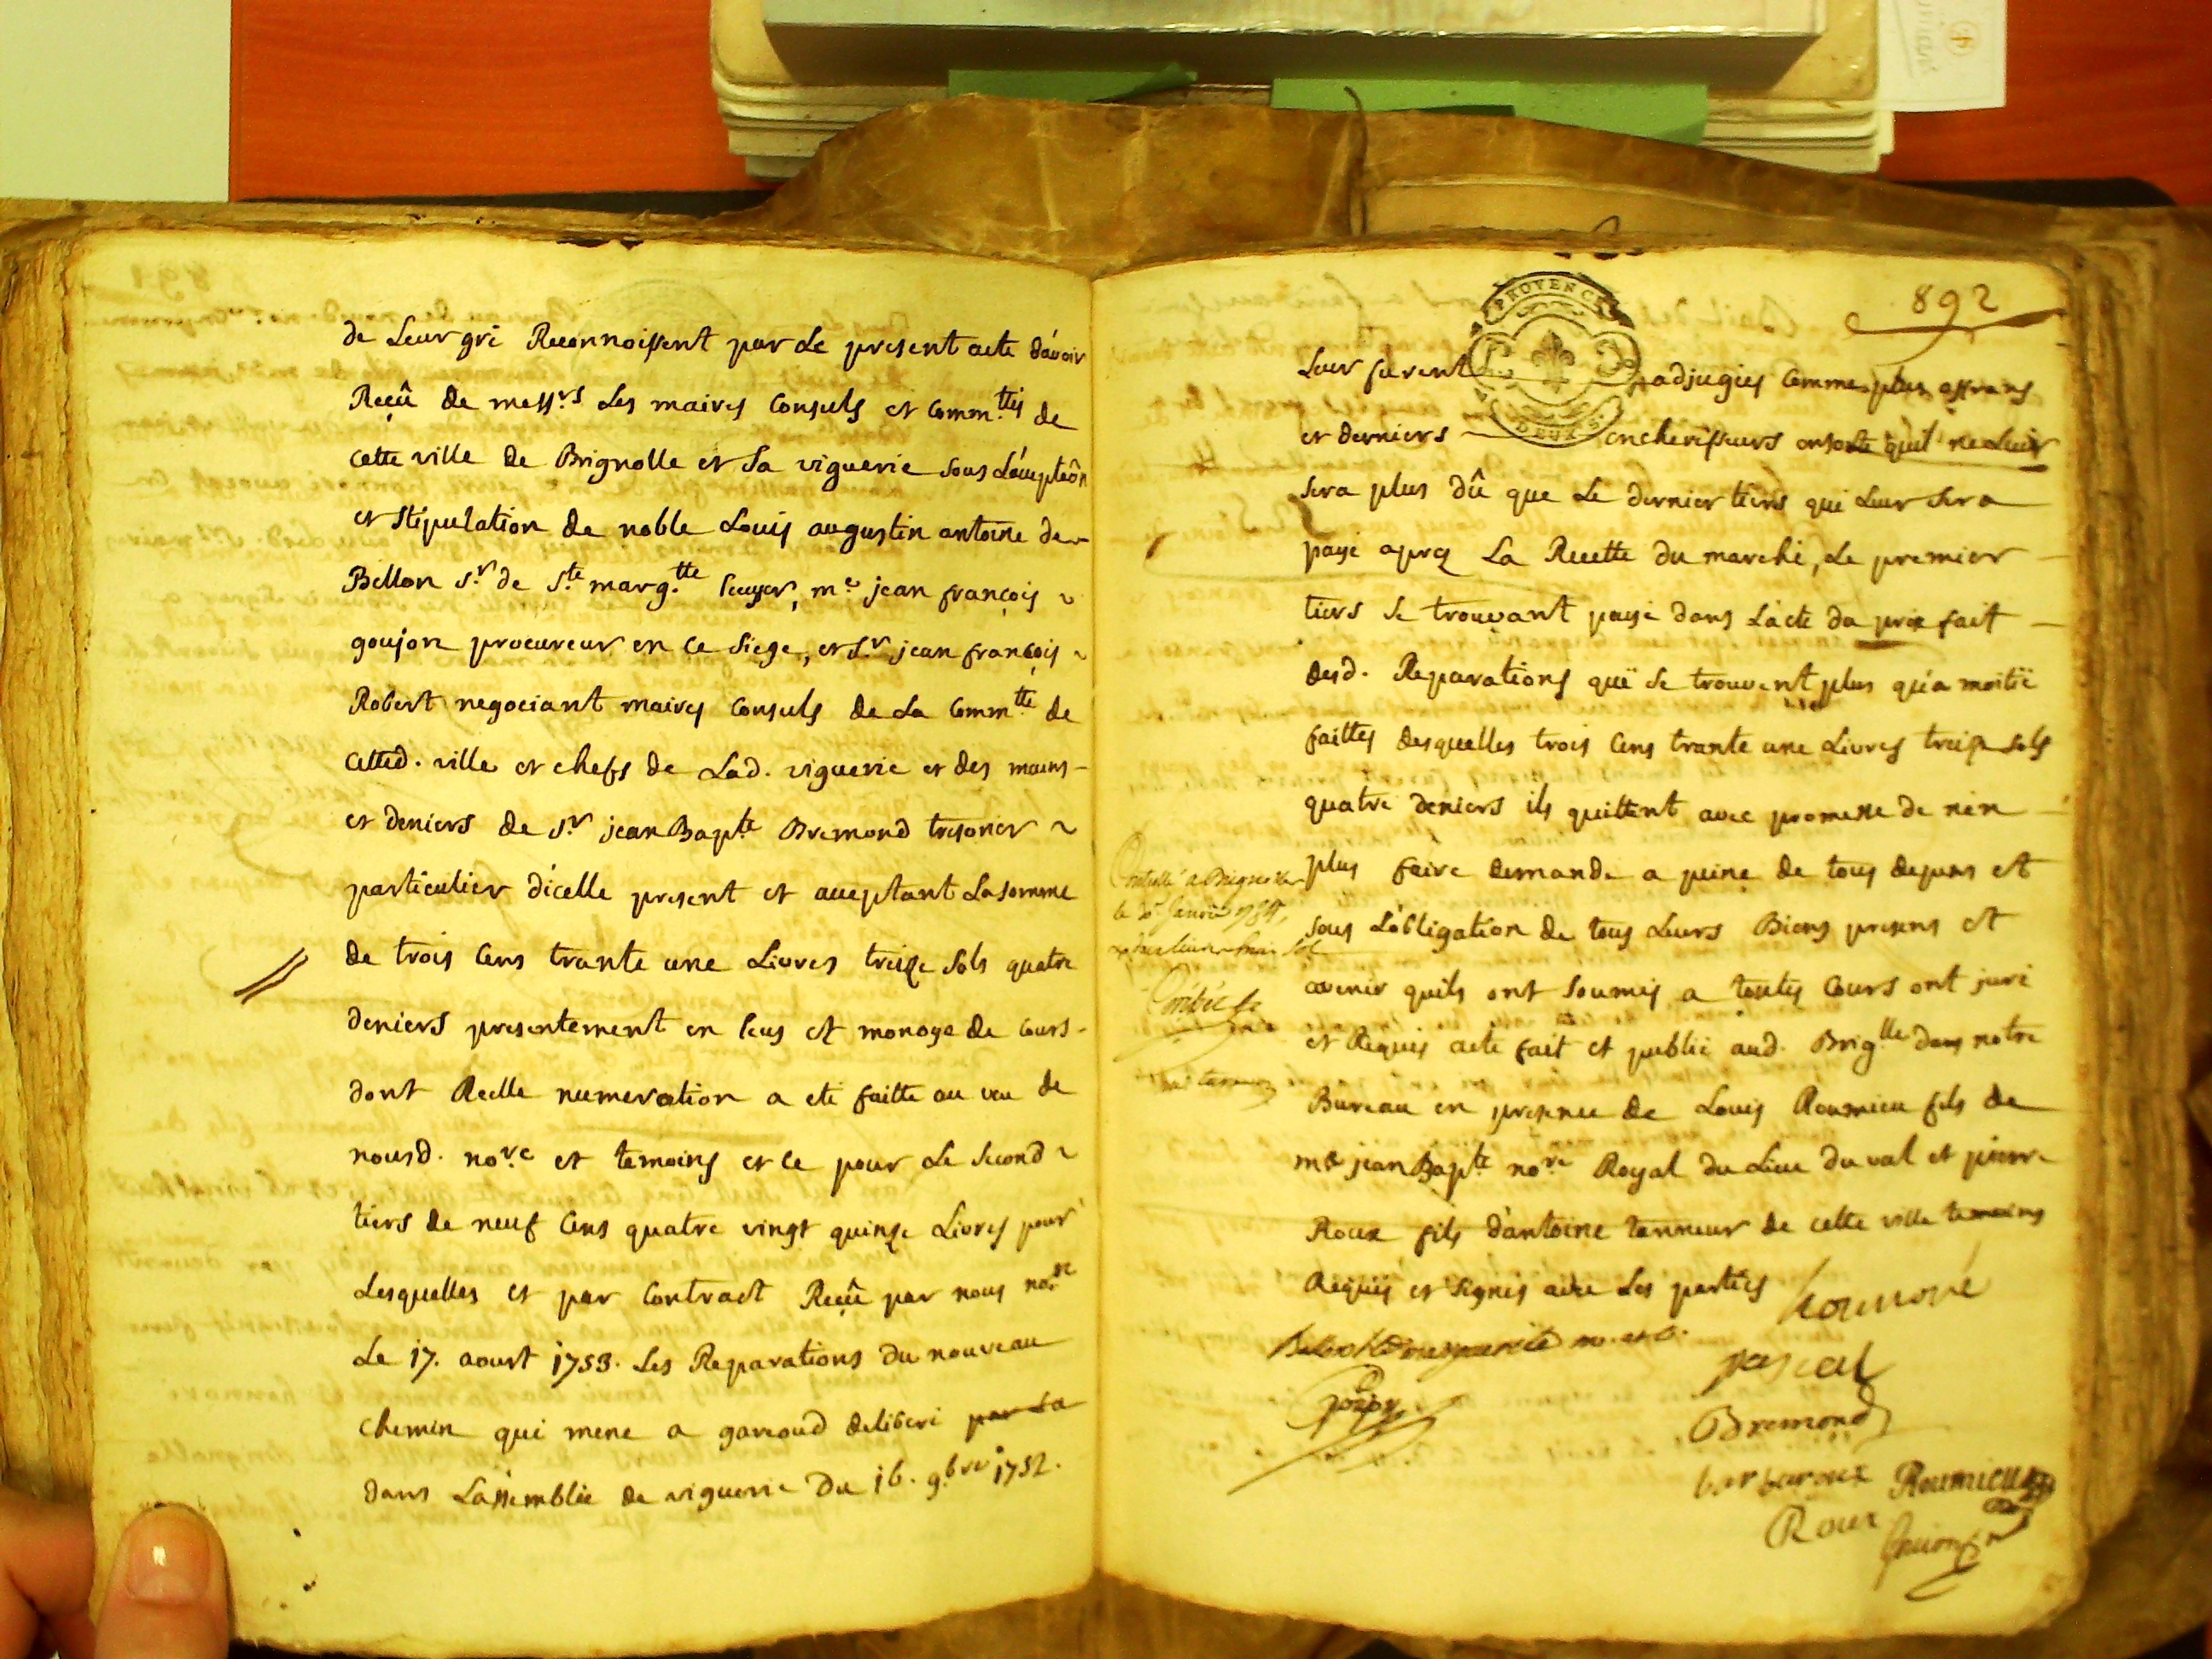 de Leur gré Reconnoissent par Le present acte d'avoir
Reçû de mess.rs Les maires Consuls et Comm.ttés de
cette ville de Brignolle et sa viguerie sous L'acceptaôn
et stipulation de noble Louis augustin antoine de
Bellon s.r de s.te marg.tte Ecuyer, m.e jean françois
goujon procureur en ce siege, et s.r jean françois
Robert negociant maires Consuls de La Comm.tté de
cetted. ville et chefs de Lad. viguerie et des mains
et deniers de s.r jean Bap.te Bremond tresorier
particulier d'icelle present et acceptant La somme
de trois Cens trante une Livres treize sols quatre
deniers presentement en Ecus et monoye de Cours
dont Reelle numeration a eté faitte au veu de
nousd. no.re et temoins et ce pour Le second
tiers de neuf Cens quatre vingt quinze Livres pour
Lesquelles et par Contract Reçû par nous no.re
Le 17. aoust 1753. Les Reparations du nouveau
chemin qui mene a gareoud deliberé par La
dans L'assemblée de viguerie du 16. 9.bre 1752.
892
PROVENCE
DEUX S.
Leur furent adjugées Comme plus offrans
et derniers encherisseurs ensorte qu'il ne Leur
sera plus dû que Le dernier tiers qui Leur sera
payé aprez La Recette du marché, Le premier
tiers se trouvant payé dans L'acte da prix fait
desd. Reparations qui se trouvent plus qu'a moitié
faittes desquelles trois Cens trante une Livres treize sols
quatre deniers ils quittent avec promesse de n'en
plus faire demande a peine de tous depans et
sous L'obligation de tous Leurs Biens presens et
avenir quils ont soumis a toutes Cours ont juré
et Requis acte fait et publié aud. Brig.lle dans notre
Bureau en presence de Louis Roumieu fils de
m.e jean Bap.te no.re Royal du Lieu du val et pierre
Roux fils d'antoine tanneur de cette ville temoins
Requis et signés avec Les parties
a Brignolle
le
pascal
Bremond
barbaroux Roumieu
Roux